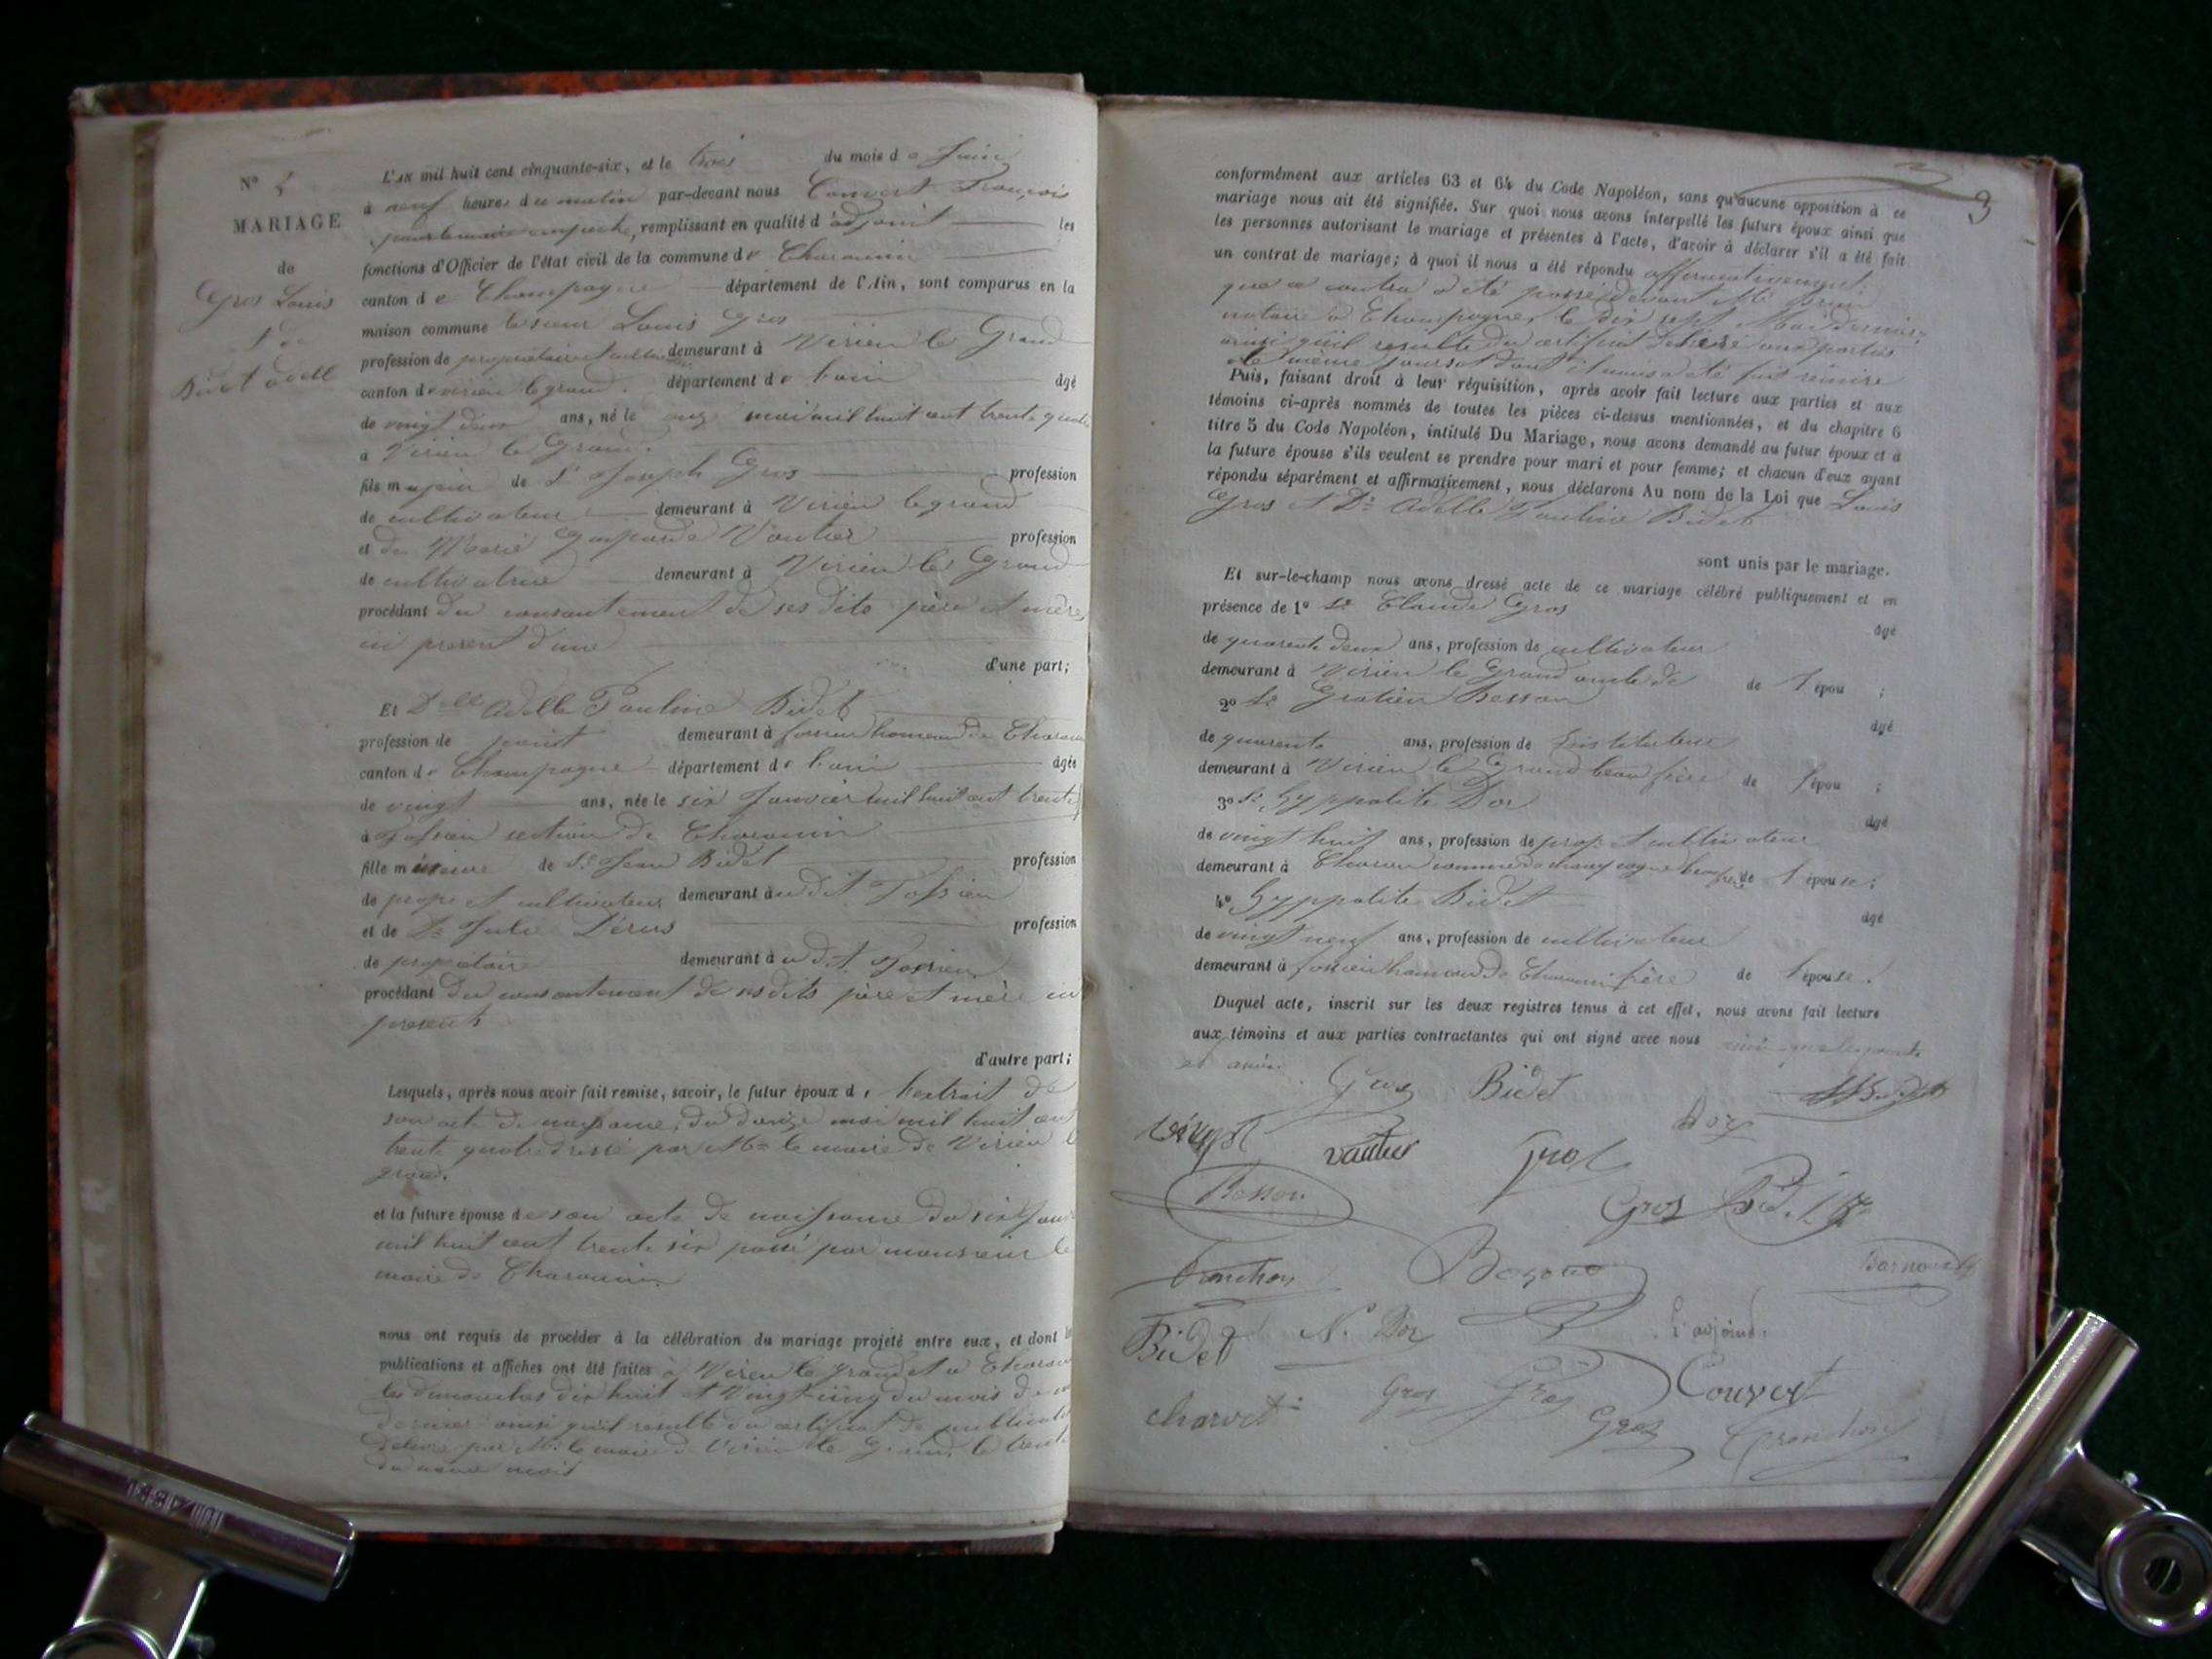 N° 5
MARIAGE
de
Gros Louis
& de
Bidet adelle
L'AN mil huit cent cinquante-six, et le trois du mois de Juin
à neuf heures du matin par-devant nous Convert François
pour le maire empeché, remplissant en qualité d'adjoint les
fonctions d'Officier de l'état civil de la commune de Charancin
canton de Champagne département de l'Ain, sont comparus en la
maison commune le sieur Louis Gros
profession de propriétaire et cultivateur demeurant à Virieu le Grand
canton de virieu le grand. département de l'ain âgé
de vingt deux ans, né le onze mai mil huit cent trente quatre
à Virieu le Grand.
fils majeur de Sr Joseph Gros profession
de cultivateur demeurant à Virieu le grand
et de Marie Gasparde Vautier profession
de cultivatrice demeurant à Virieu le Grand
procédant du consentement de ses dits père et mère,
ici present d'une
d'une part;
Et Delle Adelle Pauline Bidet
profession de demeurant à fossieu hameau de Charancin
canton de Champagne département de l'ain âgée
de vingt ans, née le six Janvier mil huit cent trente
à Fossieu section de Charancin
fille mineure de Sr Jean Bidet profession
de propre et cultivateur demeurant audit Fossieu
et de De Julie profession
de propriétaire demeurant audit Fossieu
procédant du consentement de ses dits père et mère ici
presents
d'autre part;
Lesquels, après nous avoir fait remise, savoir, le futur époux de l'extrait de
son acte de naissance, du donze mai mil huit cent
trente quatre dressé par Mr le maire de Virieu le
grand.
et la future épouse de son acte de naissance du six Janv
mil huit cent trente six passé par monsieur le
maire de Charancin
nous ont requis de procéder à la célébration du mariage projeté entre eux, et dont les
publications et affiches ont été faites à Virieu le grand et à Charancin
les dimanches dix huit et vingt cinq du mois de
dernier ainsi qu'il resulte du certificat de publication
délivré par Mr le maire de Virieu le Grand, le trente
du même mois
3
conformément aux articles 63 et 64 du Code Napoléon, sans qu'aucune opposition à ce
mariage nous ait été signifiée. Sur quoi nous avons interpellé les futurs époux ainsi que
les personnes autorisant le mariage et présentes à l'acte, d'avoir à déclarer s'il a été fait
un contrat de mariage; à quoi il nous a été répondu affirmativement;
que ce contra a été passé devant Me
notaire à Champagne, le dix sept Mai dernier,
ainsi qu'il resulte du certificat délivré aux parties
le même jour et dont il nous a été fait remise
Puis, faisant droit à leur réquisition, après avoir fait lecture aux parties et aux
témoins ci-après nommés de toutes les pièces ci-dessus mentionnées, et du chapitre 6
titre 5 du Code Napoléon, intitulé Du Mariage, nous avons demandé au futur époux et à
la future épouse s'ils veulent se prendre pour mari et pour femme; et chacun d'eux ayant
répondu séparément et affirmativement, nous déclarons Au nom de la Loi que Louis
Gros et De Adelle Pauline Bidet
sont unis par le mariage.
Et sur-le-champ nous avons dressé acte de ce mariage célébré publiquement et en
présence de 1° Sr Claude Gros
âgé
de quarente deux ans, profession de cultivateur
demeurant à Virieu le Grand oncle de de l'épou ;
2° Sr Gratien Besson
âgé
de quarente ans, profession de Instituteur
demeurant à Virieu le Grand beau frère de l'épou ;
3° Sr Hyppolite Dor
âgé
de vingt huit ans, profession de prop. et cultivateur
demeurant à commune de champagne beau frère de l'épouse;
4° Hyppolite Bidet
âgé
de vingt neuf ans, profession de cultivateur
demeurant à fossieu hameau de Charancin frère de l'épouse.
Duquel acte, inscrit sur les deux registres tenus à cet effet, nous avons fait lecture
aux témoins et aux parties contractantes qui ont signé avec nous ainsi que les parents
et amis.
Gros Bidet
Dor
vautier Gros
Besson Gros
Tronchon
Bidet N. Dor l'adjoint.
Convert
charvet Gros Gros
Gros Tronchon